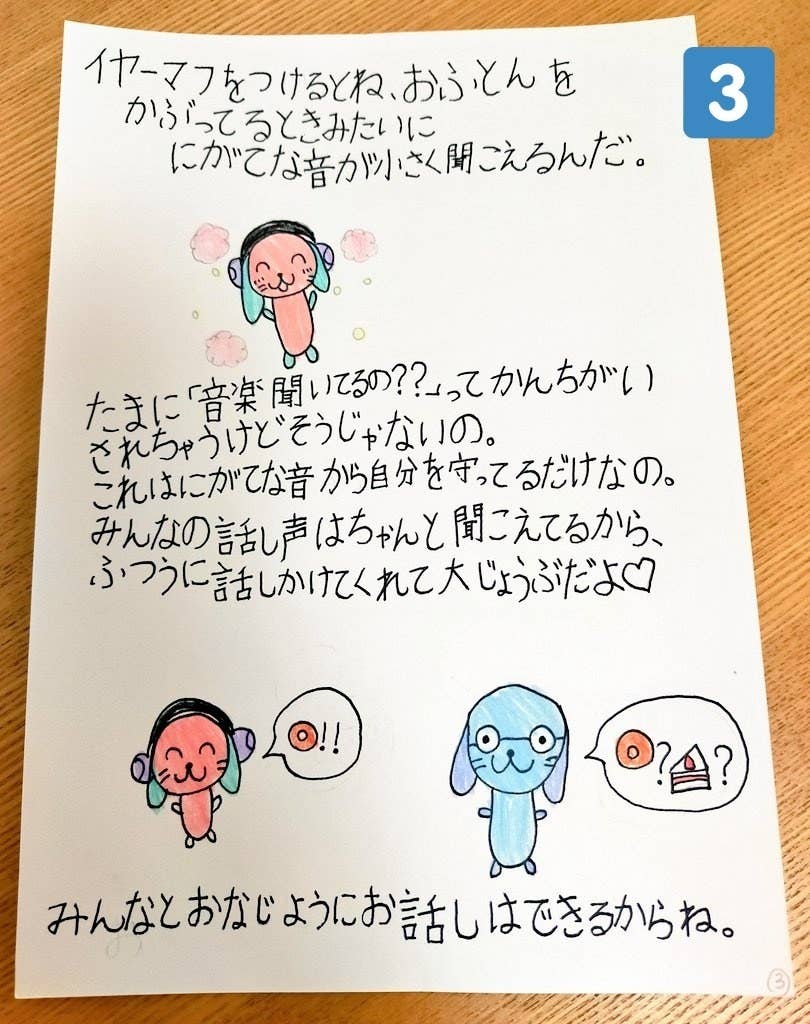 3
イヤーマフをつけるとね、おふとんを
かぶってるときみたいに
にがてな音が小さく聞こえるんだ。
たまに「音楽聞いてるの??」ってかんちがい
されちゃうけどそうじゃないの。
これはにがてな音から自分を守ってるだけなの。
みんなの話し声はちゃんと聞こえてるから、
ふつうに話しかけてくれて大じょうぶだよ♡
!!
??
みんなとおなじようにお話しはできるからね。
③